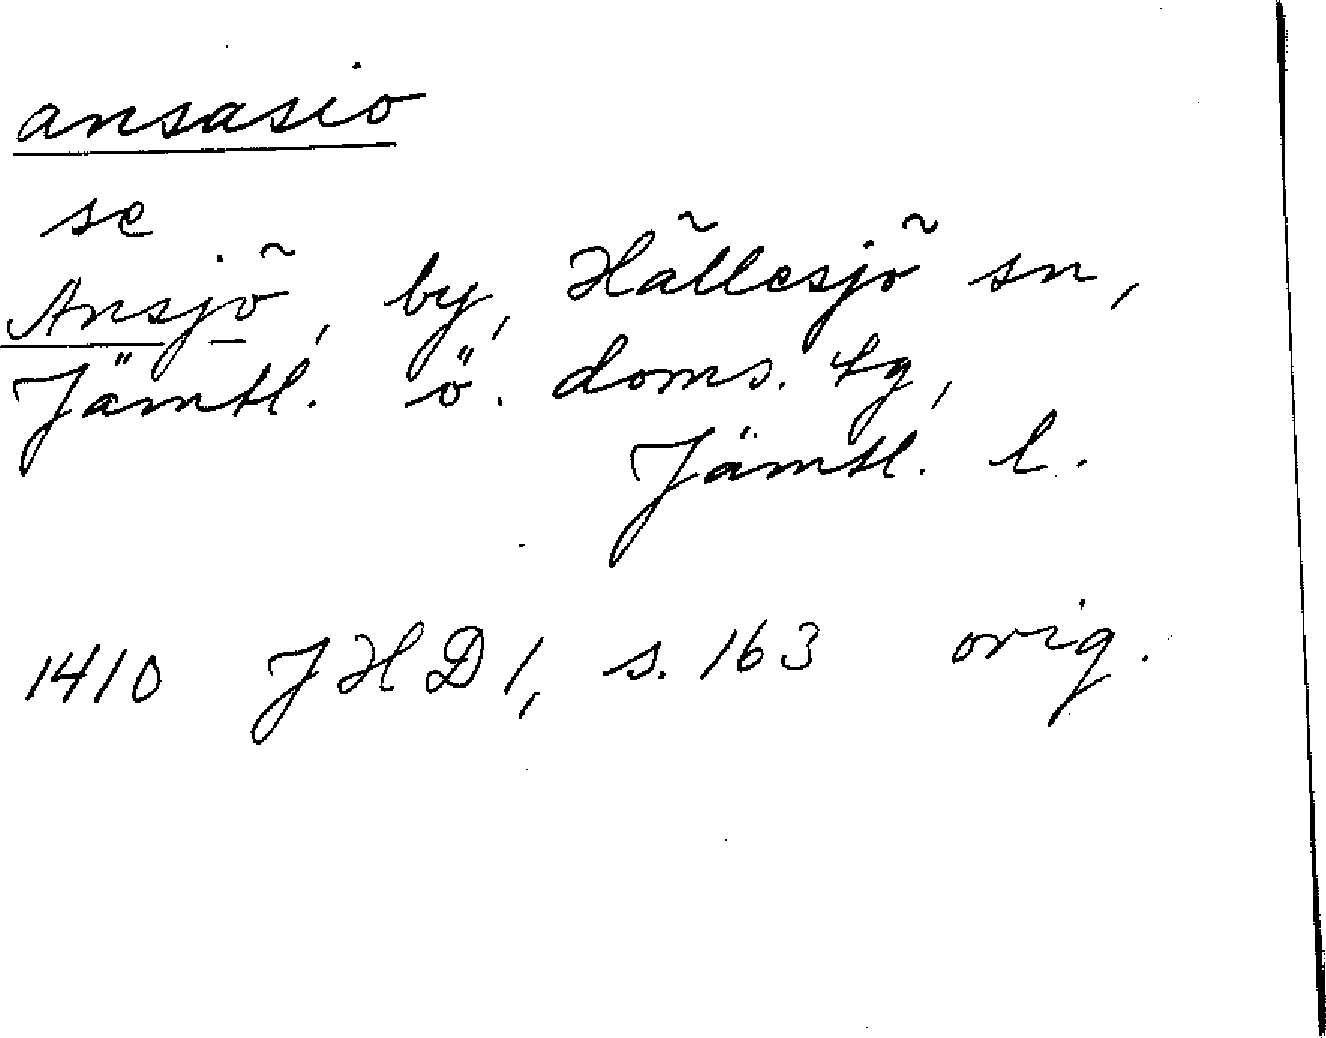 ansasio
se
Ansjö, by, Hällesjö sn,
Jämtl. ö. doms. tg,
Jämtl. l.
1410 JHD 1, s. 163 orig.